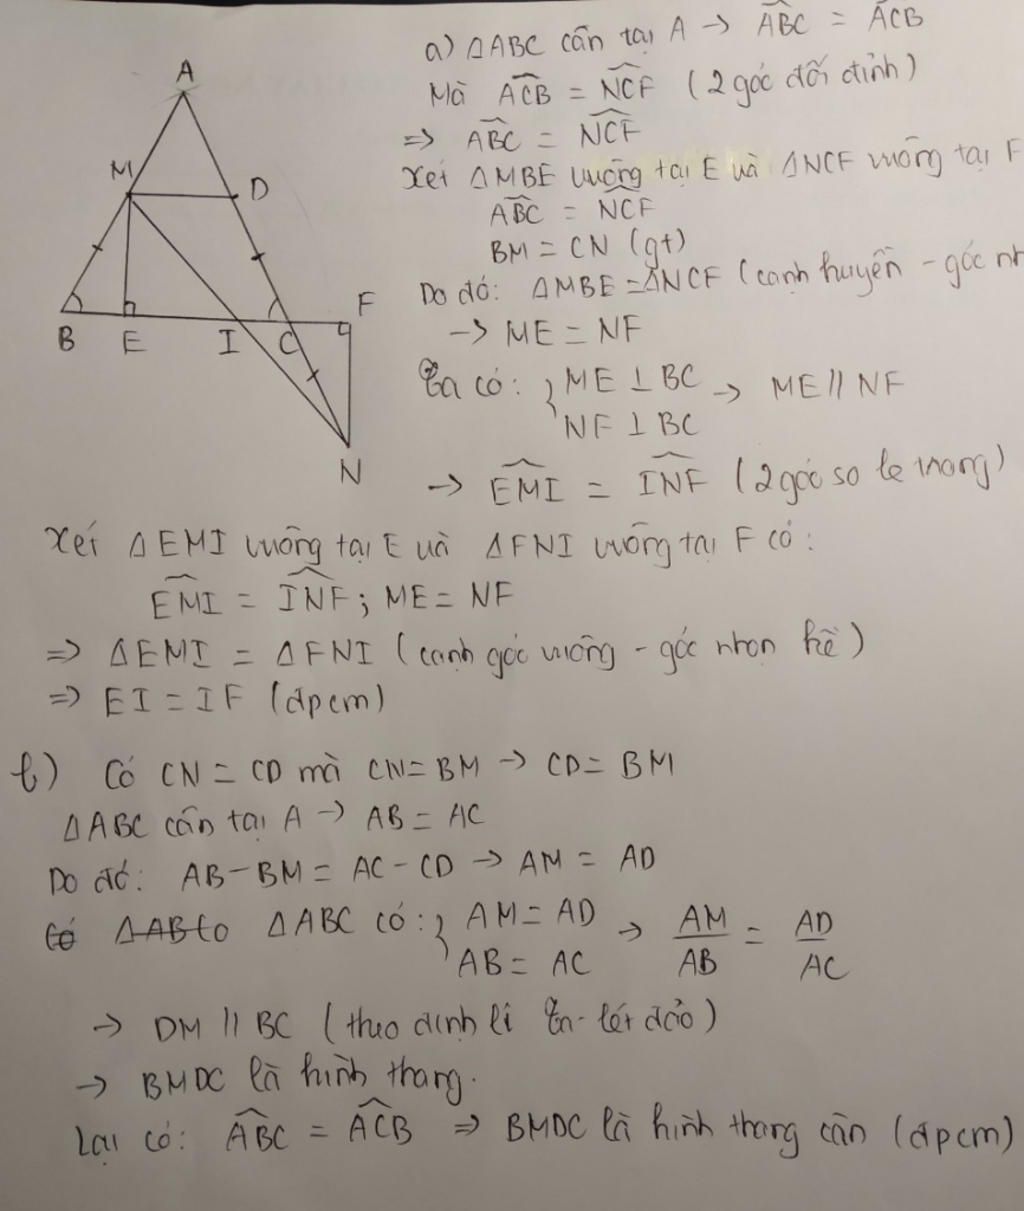 A
M
D
B
E
I
C
F
N
a) ΔABC cân tại A → \widehat{ABC} = \widehat{ACB}
Mà \widehat{ACB} = \widehat{NCF} (2 góc đối đỉnh)
⇒ \widehat{ABC} = \widehat{NCF}
Xét ΔMBE vuông tại E và ΔNCF vuông tại F
\widehat{ABC} = \widehat{NCF}
BM = CN (gt)
Do đó: ΔMBE = ΔNCF (cạnh huyền - góc nh
→ ME = NF
Ta có: { ME ⊥ BC → ME // NF
NF ⊥ BC
→ \widehat{EMI} = \widehat{INF} (2 góc so le trong)
Xét ΔEMI vuông tại E và ΔFNI vuông tại F có:
\widehat{EMI} = \widehat{INF}; ME = NF
⇒ ΔEMI = ΔFNI (cạnh góc vuông - góc nhọn kề)
⇒ EI = IF (đpcm)
b) Có CN = CD mà CN = BM → CD = BM
ΔABC cân tại A → AB = AC
Do đó: AB - BM = AC - CD → AM = AD
ΔABC có: { AM = AD → \frac{AM}{AB} = \frac{AD}{AC}
AB = AC
→ DM // BC (theo định lí Ta-lét đảo)
→ BMDC là hình thang.
Lại có: \widehat{ABC} = \widehat{ACB} ⇒ BMDC là hình thang cân (đpcm)